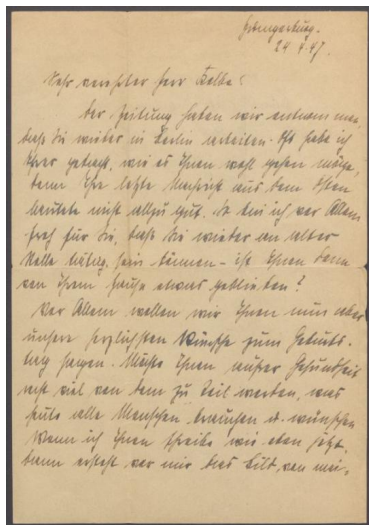 24.4.47.
Sehr verehrter Herr Kolbe!
Der Zeitung haben wir entnommen,
daß Sie wieder in Berlin arbeiten. Oft habe ich
gedacht, wie es Ihnen wohl gehen möge,
denn Ihre letzte Nachricht aus dem Osten
lautete nicht allzu gut. So bin ich vor Allem
froh für Sie, daß Sie wieder an alter
Stelle tätig sein können – ist Ihnen denn
von Ihrem Hause etwas geblieben?
Vor Allem wollen wir Ihnen nun aber
unsere herzlichsten Wünsche zum Geburts-
tag sagen. Möge Ihnen außer Gesundheit
recht viel von dem zu Teil werden, was
heute alle Menschen brauchen u. wünschen
Wenn ich Ihnen schreibe wie eben jetzt,
dann ersteht vor mir das Bild von mei-